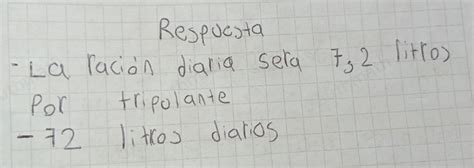 Respuesta
- La ración diaria sera 7,2 litros
Por tripolante
- 72 litros diarios